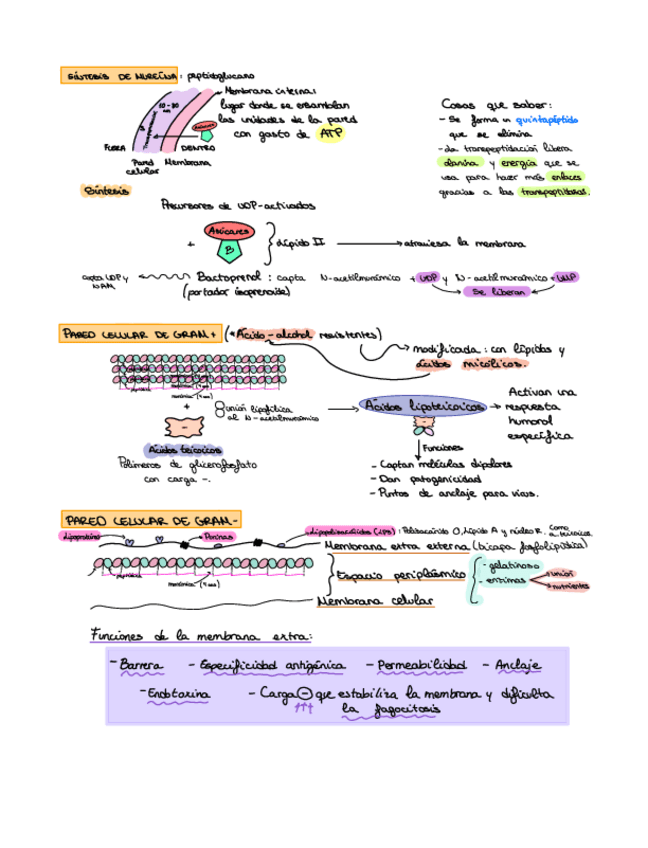 SÍNTESIS DE MUREÍNA: peptidoglucano
Membrana interna:
lugar donde se ensamblan
las unidades de la pared
con gasto de ATP
10-80
nm
Transpeptidación
Azúcares
B
FUERA
DENTRO
Pared celular
Membrana
Cosas que saber:
- Se forma un quintapéptido
que se elimina
- La transpeptidación libera
alanina y energía que se
usa para hacer más enlaces
gracias a las transpeptidasas.
Síntesis
Precursores de UDP-activados
+
Azúcares
B
Lípido II
atraviesa la membrana
capta UDP y
NAM
Bactoprenol: capta N-acetilmurámico + UDP y N-acetilmurámico + UDP
(portador isoprenoide)
Se liberan
PARED CELULAR DE GRAM + (*Ácido-alcohol resistentes)
modificada: con lípidos y
ácidos micólicos.
+
unión lipofílica
al N-acetilmurámico
-
Ácidos teicoicos
Polímeros de glicerofosfato
con carga -.
Ácidos lipoteicoicos
-
Activan una
respuesta
humoral
específica
Funciones
- Captan moléculas dipolares
- Dan patogenicidad
- Puntos de anclaje para virus.
PARED CELULAR DE GRAM-
Lipoproteína
Porinas
Lipopolisacáridos (LPS): Polisacárido O, Lípido A y núcleo R.
como
a. teicoicos
Membrana extra externa (bicapa fosfolipídica)
Espacio periplásmico
- gelatinoso
- enzimas
unión
nutrientes
Membrana celular
Funciones de la membrana extra:
- Barrera - Especificidad antigénica - Permeabilidad - Anclaje
- Endotoxina - Carga - que estabiliza la membrana y dificulta
↑↑↑ la fagocitosis